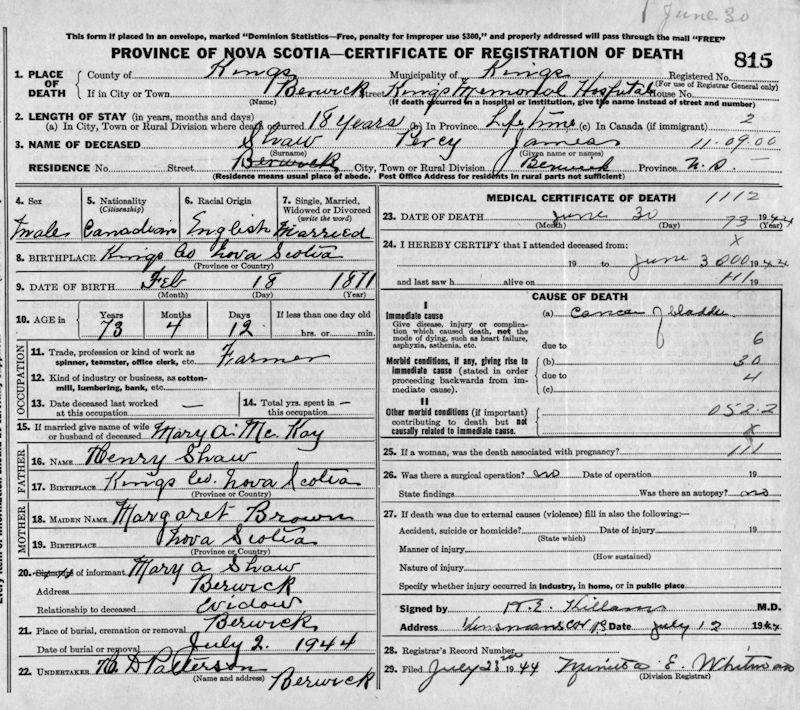 June 30
This form if placed in an envelope, marked "Dominion Statistics—Free, penalty for improper use $300," and properly addressed will pass through the mail "FREE"
PROVINCE OF NOVA SCOTIA—CERTIFICATE OF REGISTRATION OF DEATH 815
1. PLACE OF DEATH County of Kings Municipality of Kings Registered No.
(For use of Registrar General only)
If in City or Town Berwick Street Kings Memorial Hospital House No.
(Name) (If death occurred in a hospital or institution, give the name instead of street and number)
2. LENGTH OF STAY (in years, months and days)
(a) In City, Town or Rural Division where death occurred 18 years (b) In Province Life time (c) In Canada (if immigrant) 2
3. NAME OF DECEASED Shaw Percy James 11.09.00
(Surname) (Given name or names)
RESIDENCE No. Street Berwick City, Town or Rural Division Berwick Province N.S. —
(Residence means usual place of abode. Post Office Address for residents in rural parts not sufficient)
4. Sex 5. Nationality (Citizenship) 6. Racial Origin 7. Single, Married, Widowed or Divorced (write the word)
male Canadian English Married
8. BIRTHPLACE Kings Co Nova Scotia
(Province or Country)
9. DATE OF BIRTH Feb 18 1871
(Month) (Day) (Year)
10. AGE in Years Months Days If less than one day old
73 4 12 hrs. or min.
OCCUPATION
11. Trade, profession or kind of work as spinner, teamster, office clerk, etc. Farmer
12. Kind of industry or business, as cotton-mill, lumbering, bank, etc.
13. Date deceased last worked at this occupation — 14. Total yrs. spent in this occupation —
15. If married give name of wife or husband of deceased Mary A. Mc. Kay
FATHER
16. NAME Henry Shaw
17. BIRTHPLACE Kings Co. Nova Scotia
(Province or Country)
MOTHER
18. MAIDEN NAME Margaret Brown
19. BIRTHPLACE Nova Scotia
(Province or Country)
20. Signature of informant Mary A Shaw
Address Berwick
Relationship to deceased Widow
21. Place of burial, cremation or removal Berwick
Date of burial or removal July 2. 1944
22. UNDERTAKER H. D Patterson
(Name and address) Berwick
MEDICAL CERTIFICATE OF DEATH 1112
23. DATE OF DEATH June 30 73 1944
(Month) (Day) (Year)
24. I HEREBY CERTIFY that I attended deceased from: x
19 to June 30 00 1944
and last saw h alive on 111 19
CAUSE OF DEATH
I
Immediate cause (a) Cancer of bladder
Give disease, injury or complication which caused death, not the mode of dying, such as heart failure, asphyxia, asthenia, etc. due to 6
Morbid conditions, if any, giving rise to immediate cause (stated in order proceeding backwards from immediate cause). (b) 30
due to 4
(c)
II
Other morbid conditions (if important) contributing to death but not causally related to immediate cause. 052.2
x
25. If a woman, was the death associated with pregnancy? 111
26. Was there a surgical operation? no Date of operation 19
State findings Was there an autopsy? no
27. If death was due to external causes (violence) fill in also the following:—
Accident, suicide or homicide? Date of injury 19
(State which)
Manner of injury
(How sustained)
Nature of injury
Specify whether injury occurred in industry, in home, or in public place
Signed by H.E. Killam M.D.
Address Date July 12 1944
28. Registrar's Record Number
29. Filed July 28 1944 E. Whitman
(Division Registrar)